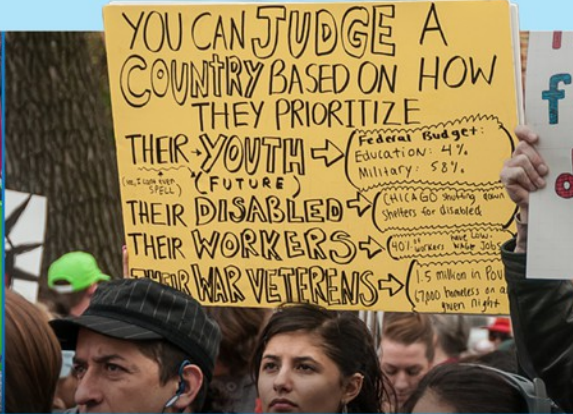 YOU CAN JUDGE A
COUNTRY BASED ON HOW
THEY PRIORITIZE
THEIR YOUTH
(FUTURE)
SPELL)
Federal Budget:
Education: 4%
Military: 58%
THEIR DISABLED
CHICAGO shutting down
shelters for disabled
THEIR WORKERS
40% of workers have low
wage Jobs
THEIR WAR VETERENS
1.5 million in Pov
67,000 homeless on a
given night
f